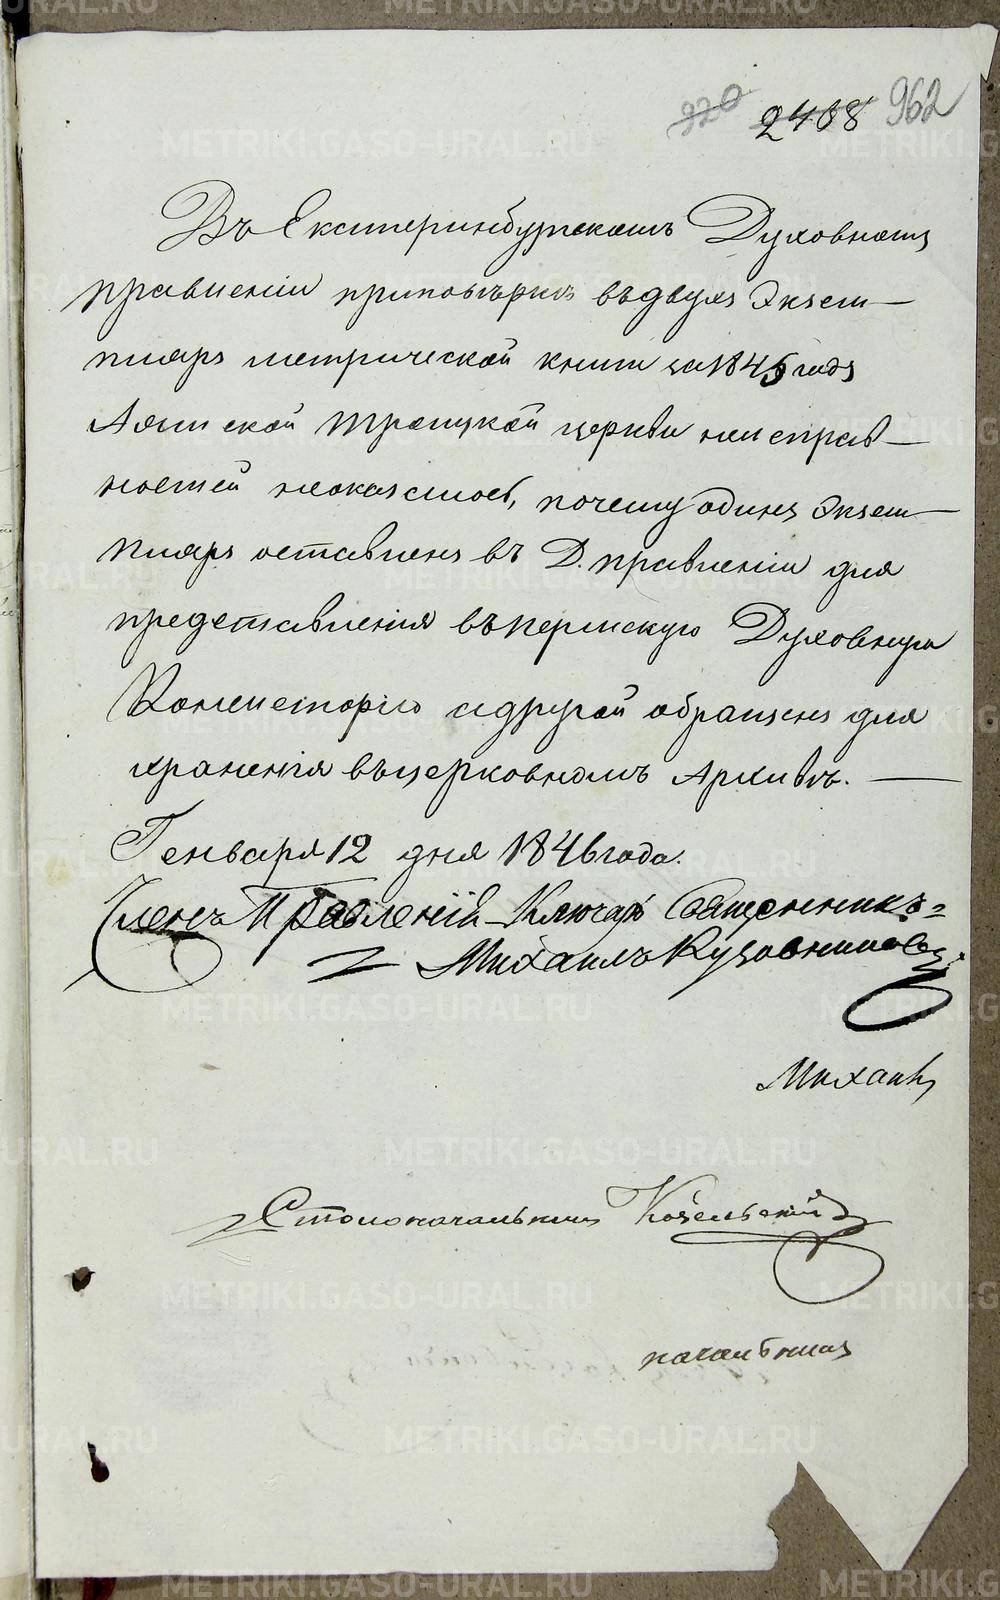 320 2408 962
Въ Екатеринбургскомъ Духовномъ
правленіи приповѣркѣ въдвухъ Экзем-
плярѣ метрической книги за1845 годъ
Аятской Троицкой церкви неисправ-
ностей неоказалось, почему одинъ Экзем-
пляръ оставленъ въ Д. правленіи для
представленія въпермскую Духовную
Консисторію адругой обращенъ для
храненія въцерковномъ Архивѣ.
Генваря 12 дня 1846 года.
Членъ Правленій Ключарь Священникъ=
Михаилъ Кузовниковъ
Михаилъ
Столоначальникъ Козельскій
начальникъ
METRIKI.GASO-URAL.RU